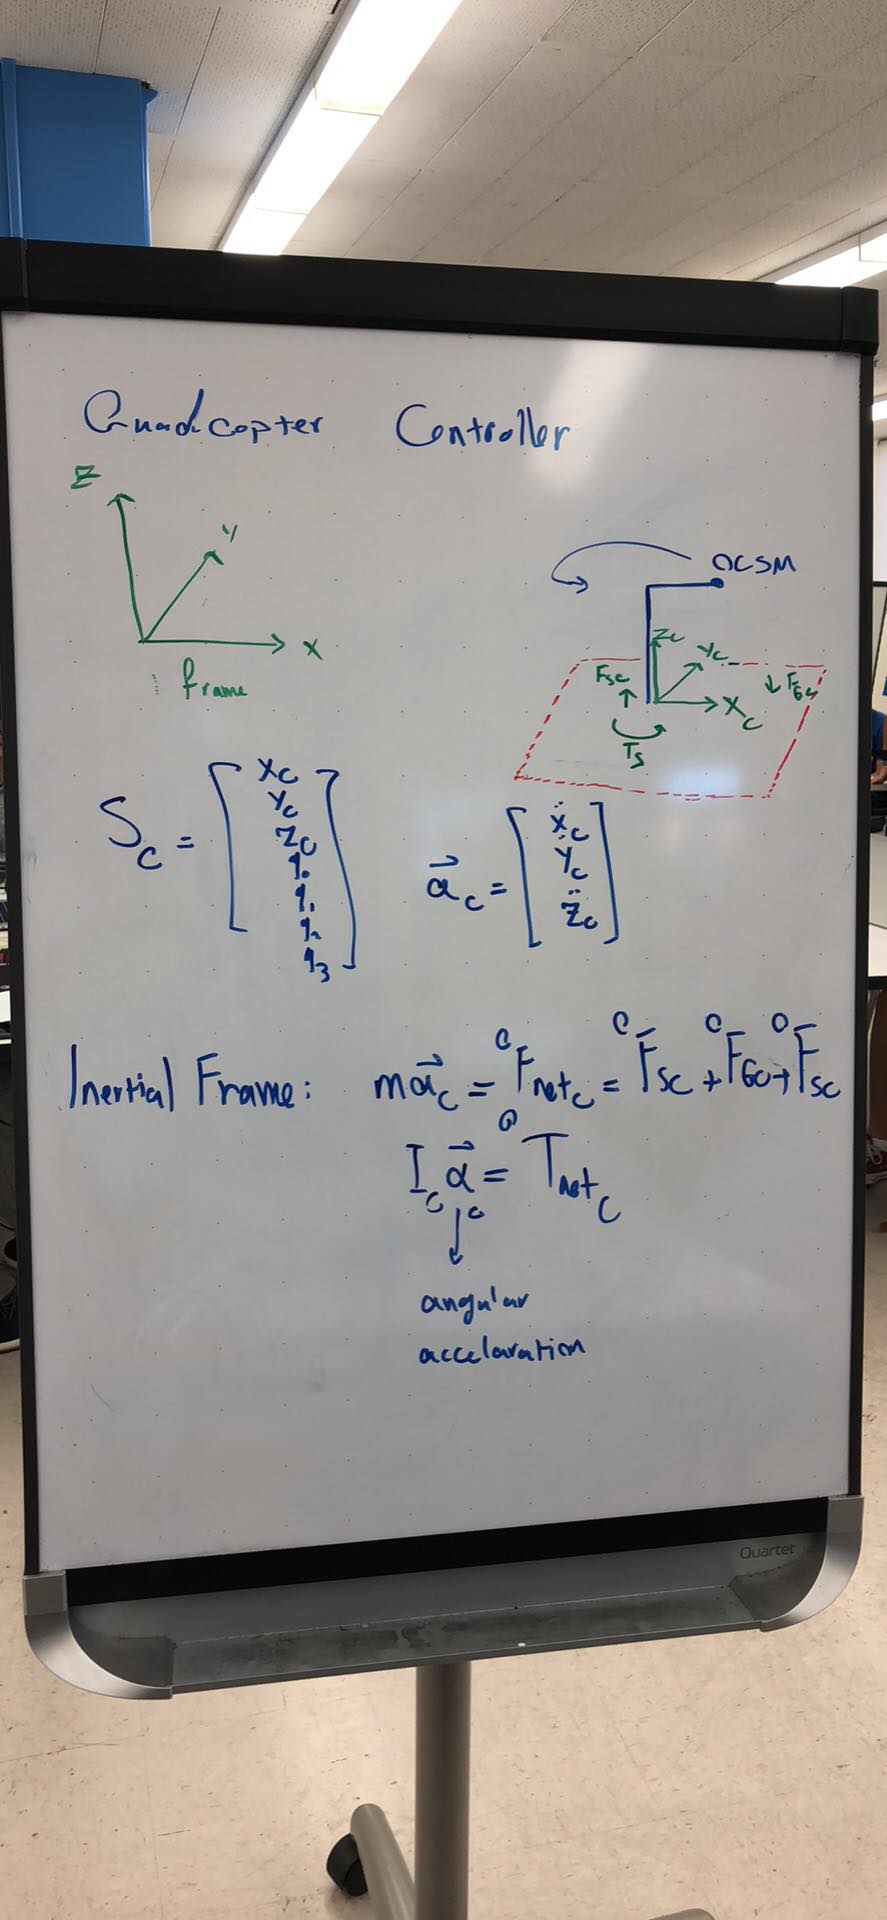 Quadcopter Controller
Z
Y
X
frame
OCSM
Zc
Yc
Xc
Fsc
FGc
Ts
Sc = [xc
yc
zc
q0
q1
q2
q3]
a⃗c = [ẍc
ÿc
z̈c]
Inertial Frame: ma⃗c = ⁰Fnetc = ⁰Fsc + ⁰FGc + ⁰Fsc
Ic α⃗c = ⁰Tnetc
↓
angular
accelaration
Quartet